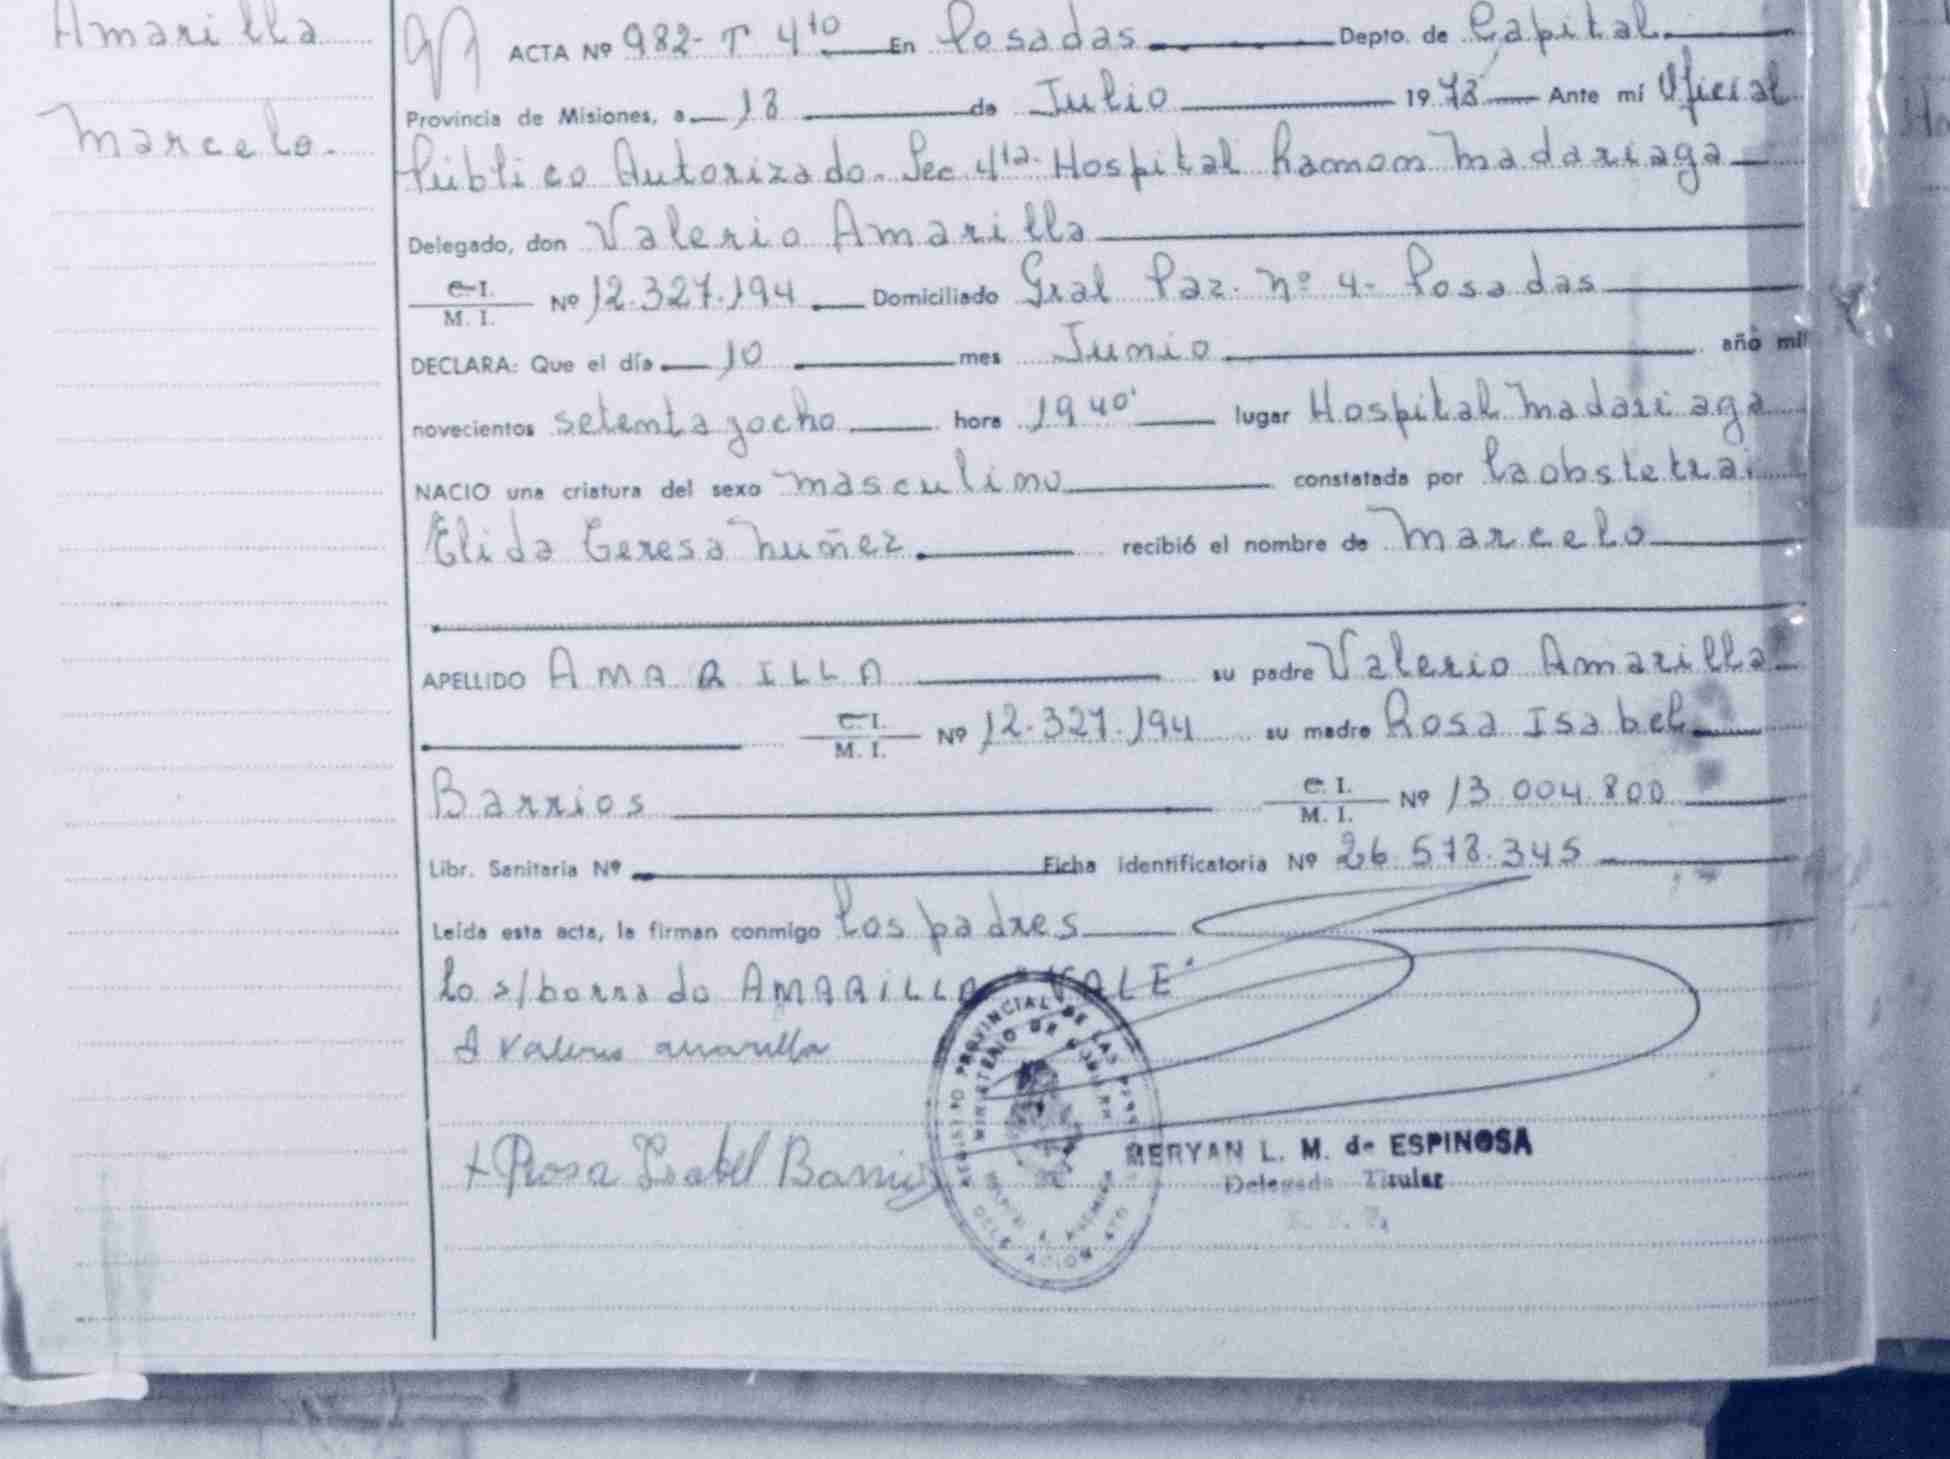 Amarilla
Marcelo.
ACTA Nº 982- T 4to En Posadas Depto. de Capital
Provincia de Misiones, a 18 de Julio 1978 Ante mí Oficial
Público Autorizado. Sec 4ta. Hospital Ramon Madariaga
Delegado, don Valerio Amarilla
C.I. / M. I. Nº 12.327.194 Domiciliado Gral Paz. nº 4- Posadas
DECLARA: Que el día 10 mes Junio año mil
novecientos setenta y ocho hora 19 40' lugar Hospital Madariaga
NACIO una criatura del sexo masculino constatada por la obstetra
Elida Teresa Nuñez. recibió el nombre de Marcelo
APELLIDO AMARILLA su padre Valerio Amarilla
C.I. / M. I. Nº 12.327.194 su madre Rosa Isabel
Barrios C. I. / M. I. Nº 13 004.800
Libr. Sanitaria Nº Ficha identificatoria Nº 26.578.345
Leída esta acta, la firman conmigo los padres
lo s/borrado AMARILLA "VALE"
Valerio amarilla
+ Rosa Isabel Barrios
REGISTRO PROVINCIAL DE LAS PERS
MINISTERIO DE GOBIERN
DELEGACION 4TO
MERYAN L. M. de ESPINOSA
Delegada Titular